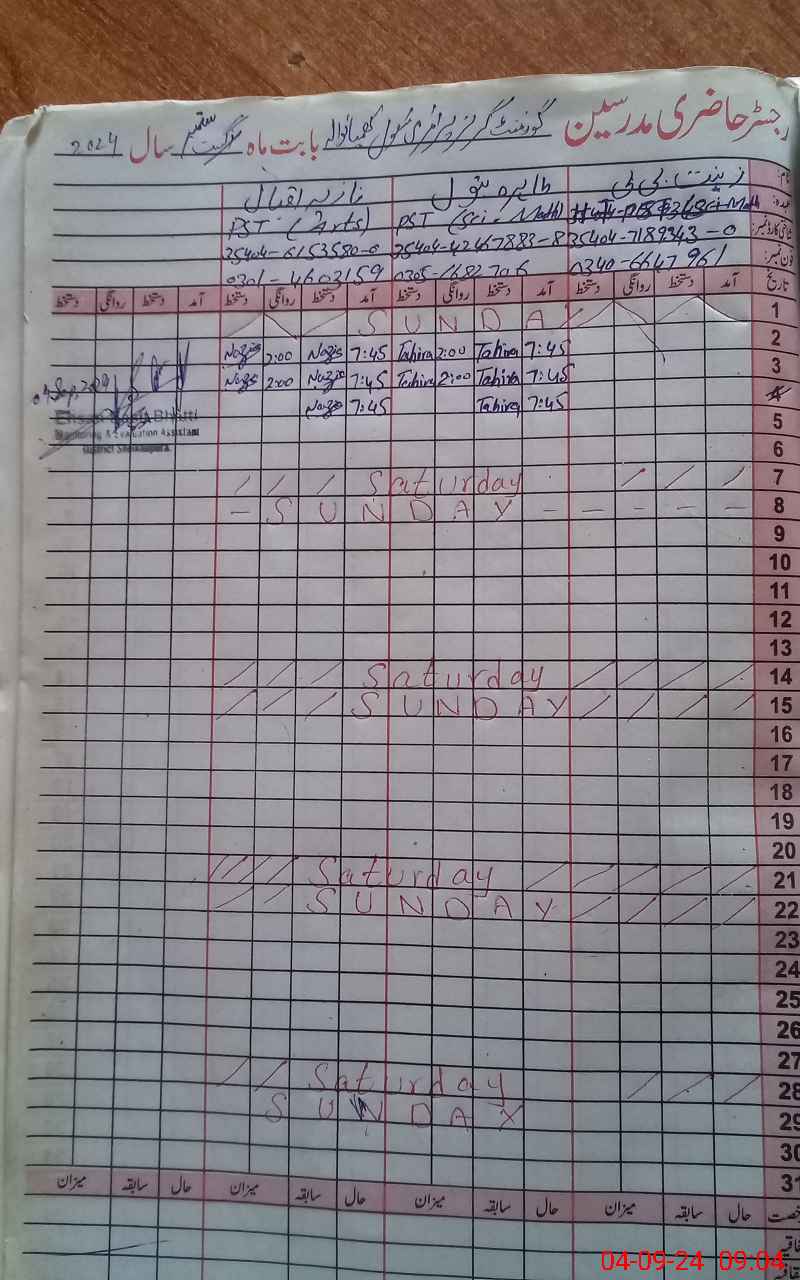 رجسٹر حاضری مدرسین گورنمنٹ گرلز پرائمری سکول بابت ماہ ستمبر سال 2024
نام: زینت بی بی طاہرہ بتول نازیہ اقبال
عہدہ: PST (Sci - Math) PST (Arts)
شناختی کارڈ نمبر: 35404-7189343-0 35404-42467883-8 35404-6153580-0
فون نمبر: 0340-6647961 0305-1682706 0301-4603159
تاریخ آمد دستخط روانگی دستخط آمد دستخط روانگی دستخط آمد دستخط روانگی دستخط آمد دستخط روانگی دستخط
1 S U N D A
2 Nazia 2:00 Nazia 7:45 Tahira 2:00 Tahira 7:45
3 Nazia 2:00 Nazia 7:45 Tahira 2:00 Tahira 7:45
4 Nazia 7:45 Tahira 7:45
04 Sep, 2024
5
Monitoring & Evaluation Assistant
District Sheikhupura
6
7 Saturday
8 - S U N D A Y - - - - -
9
10
11
12
13
14 Saturday
15 S U N D A Y
16
17
18
19
20
21 Saturday
22 S U N D A Y
23
24
25
26
27
28 Saturday
29 S U N D A Y
30
31
رخصت حال سابقہ میزان حال سابقہ میزان حال سابقہ میزان حال سابقہ میزان
04-09-24 09:04